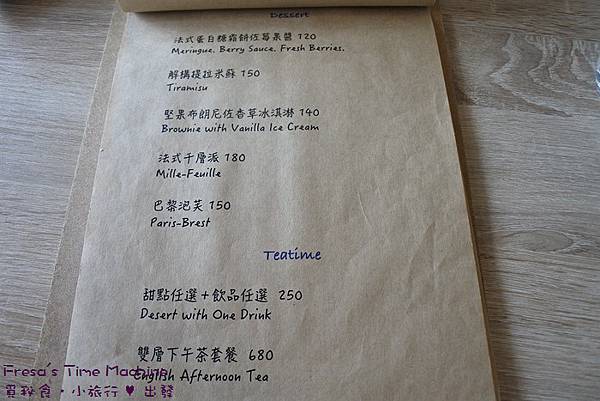 Dessert
法式蛋白糖霜餅佐莓果醬 120
Meringue. Berry Sauce. Fresh Berries.
解構提拉米蘇 150
Tiramisu
堅果布朗尼佐香草冰淇淋 140
Brownie with Vanilla Ice Cream
法式千層派 180
Mille-Feuille
巴黎泡芙 150
Paris-Brest
Teatime
甜點任選+飲品任選 250
Desert with One Drink
雙層下午茶套餐 680
English Afternoon Tea
Fresa's Time Machine
覓秘食·小旅行♥出發